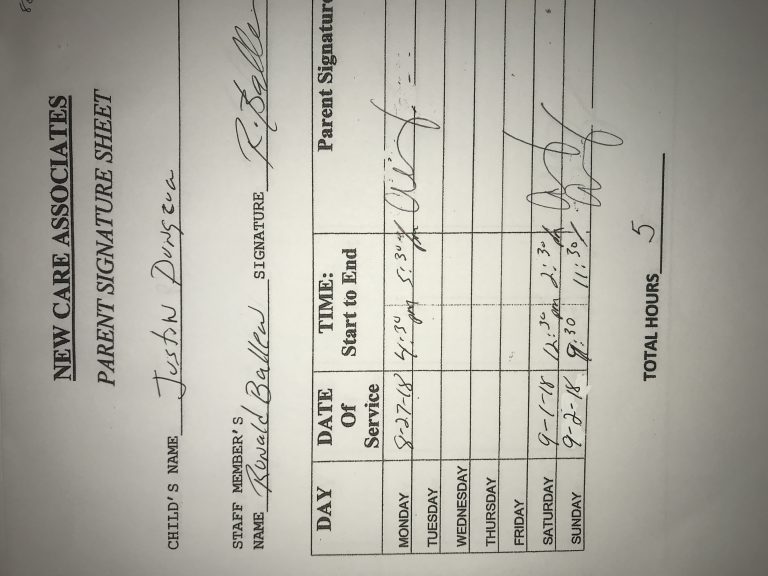 NEW CARE ASSOCIATES
PARENT SIGNATURE SHEET
CHILD'S NAME Justin
STAFF MEMBER'S
NAME Ronald Ballew SIGNATURE R. Balle
DAY DATE Of Service TIME: Start to End Parent Signature
MONDAY 8-27-18 4:30 pm 5:30 pm
TUESDAY
WEDNESDAY
THURSDAY
FRIDAY
SATURDAY 9-1-18 12:30 pm 2:30 pm
SUNDAY 9-2-18 9:30 11:30
TOTAL HOURS 5